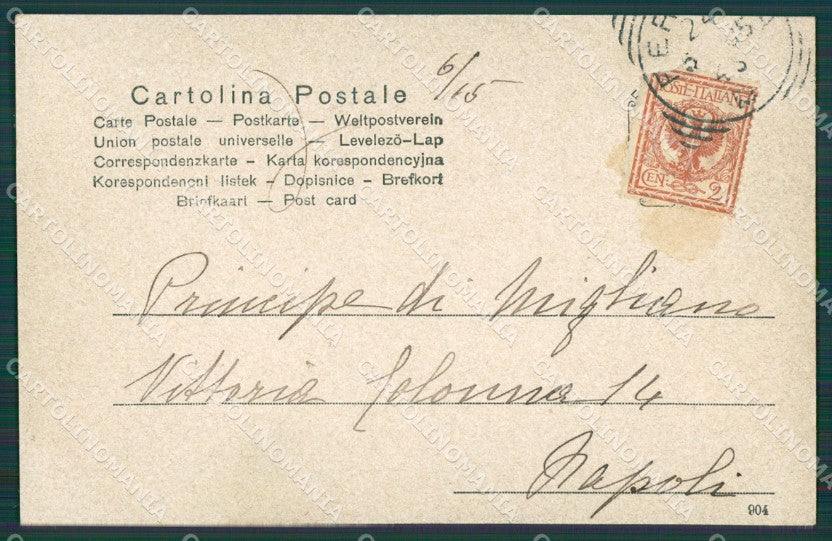 Cartolina Postale
6/15
Carte Postale — Postkarte — Weltpostverein
Union postale universelle — Levelező-Lap
Correspondenzkarte - Karta korespondencyjna
Korespondencni listek - Dopisnice - Brefkort
Briefkaart — Post card
POSTE·ITALIANE
CEN. 2
Principe di Migliano
Vittoria Colonna 14
Napoli
904
CARTOLINOMANIA